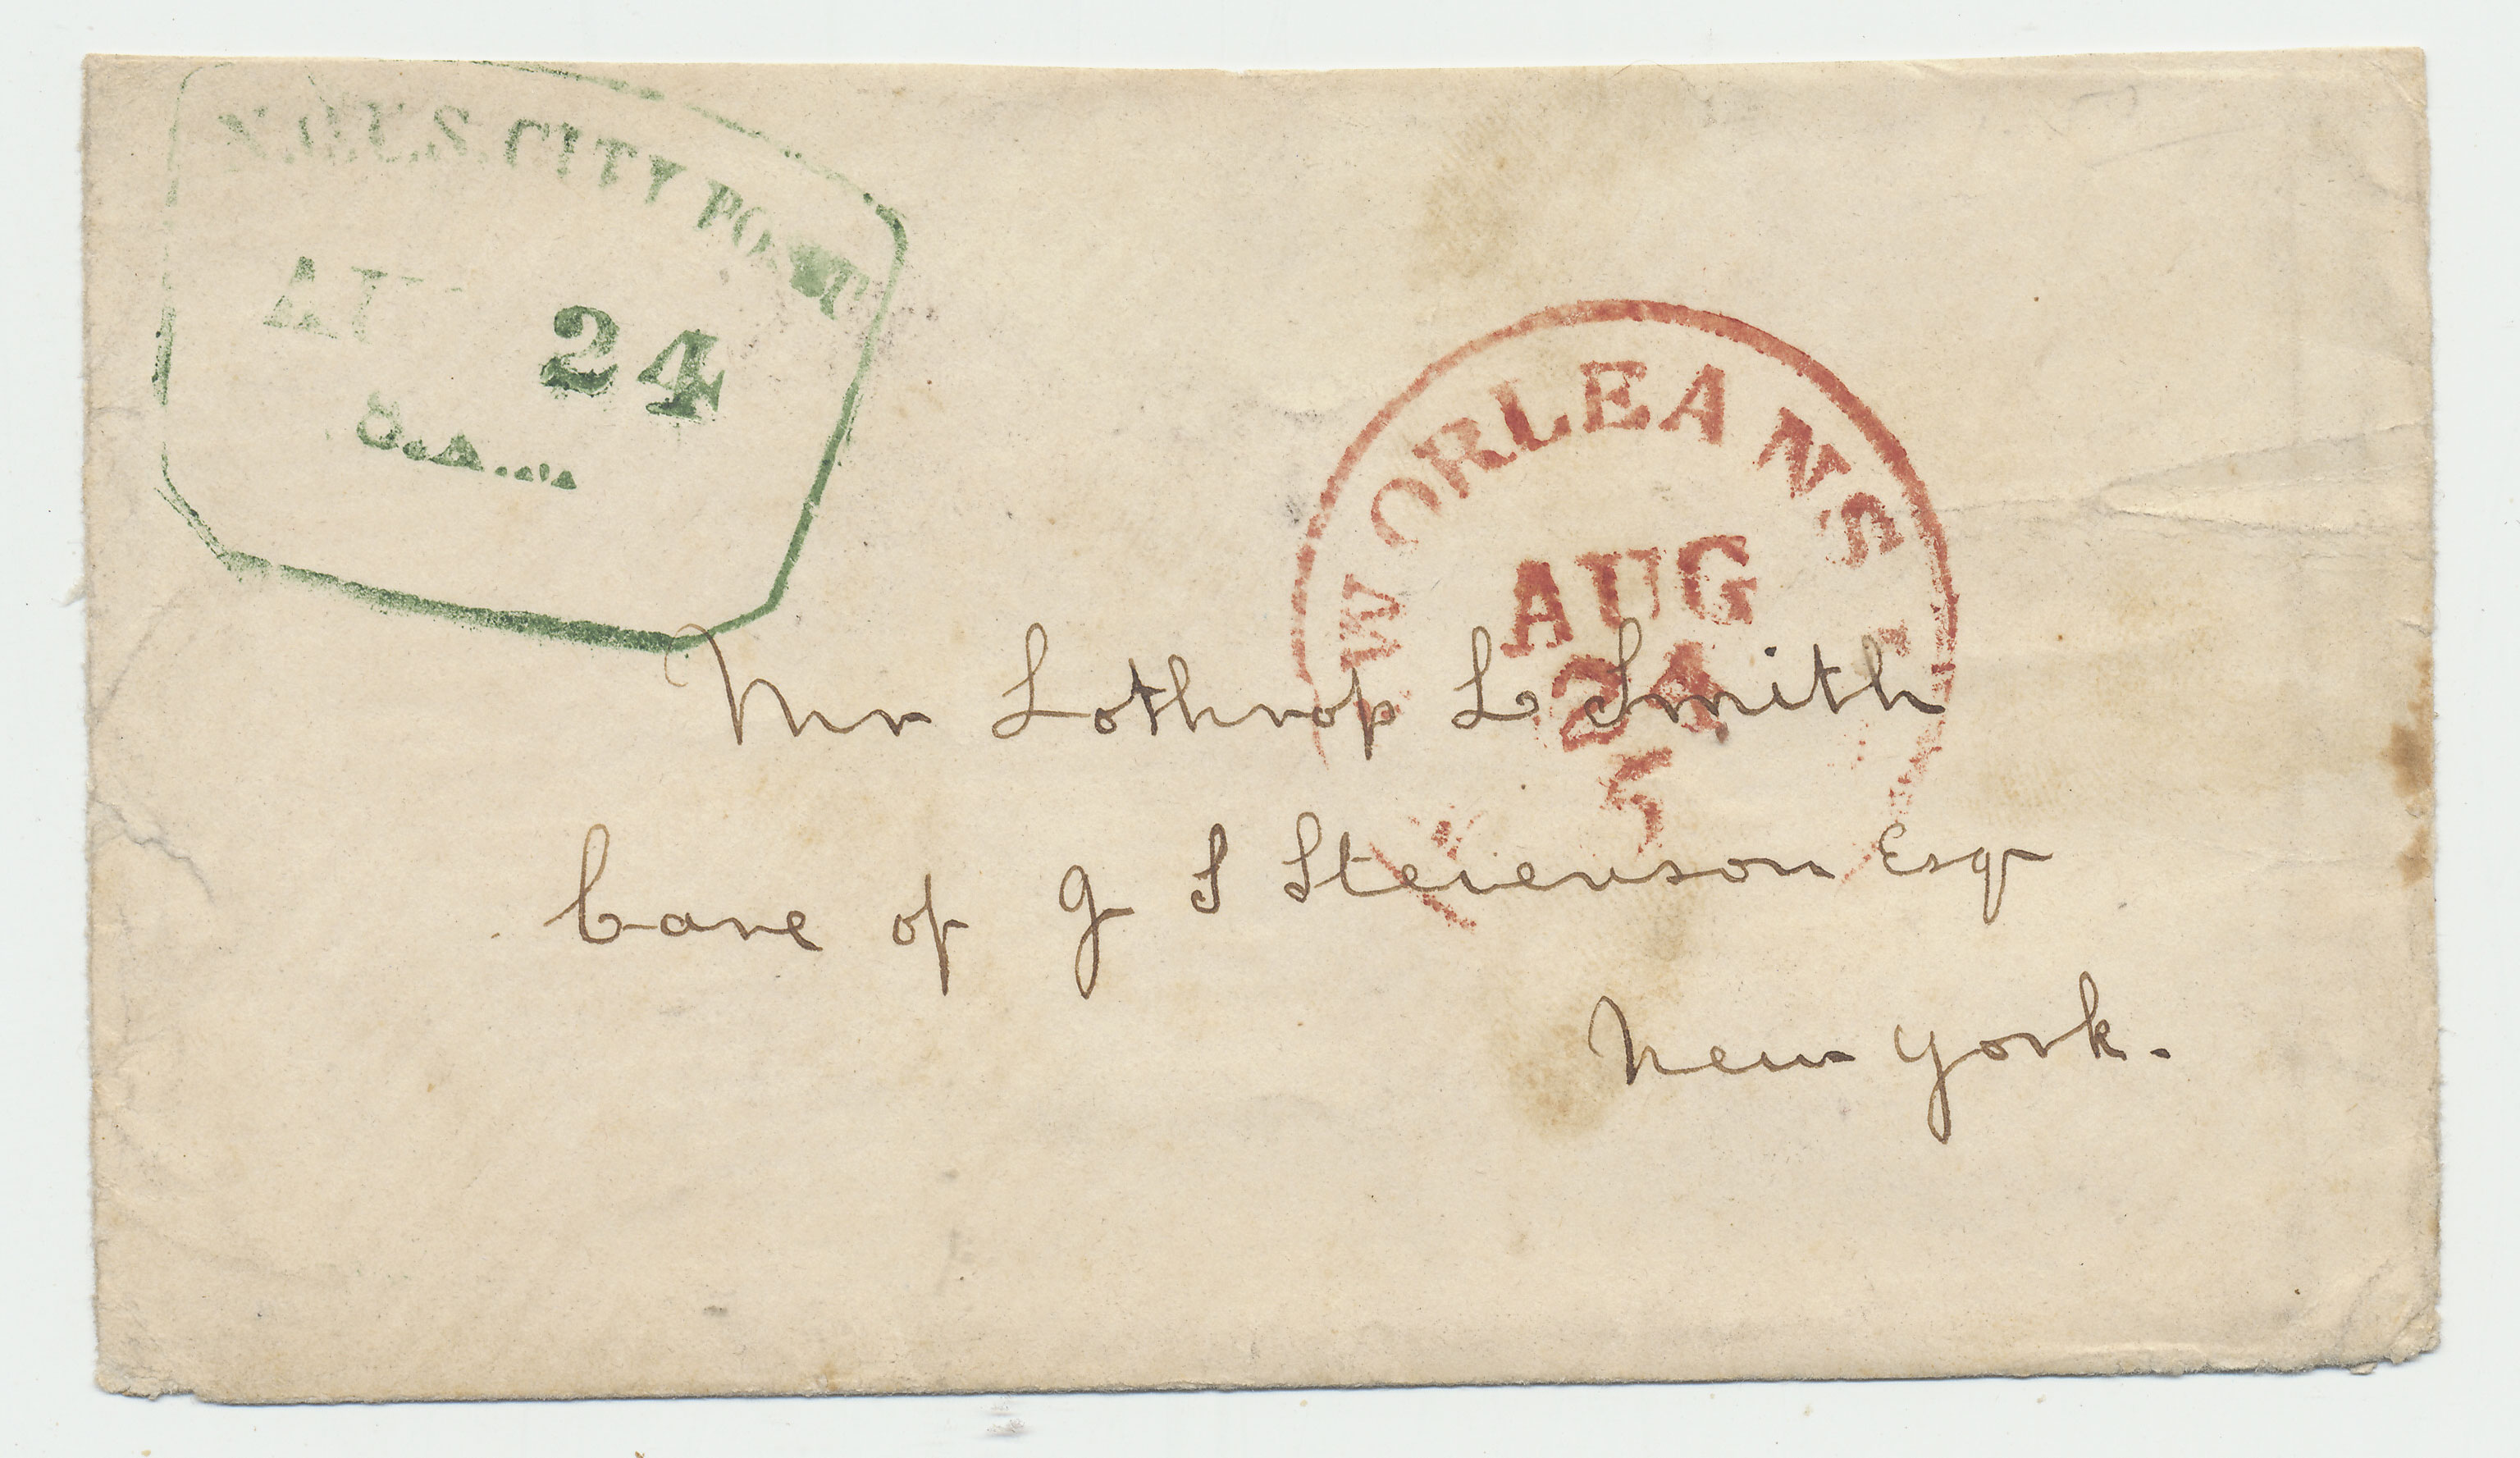 N.O.U.S. CITY POST
24
8.A.
W ORLEANS
AUG
24
5
Mr Lothrop L Smith
Care of J S Stevenson Esqr
New York.